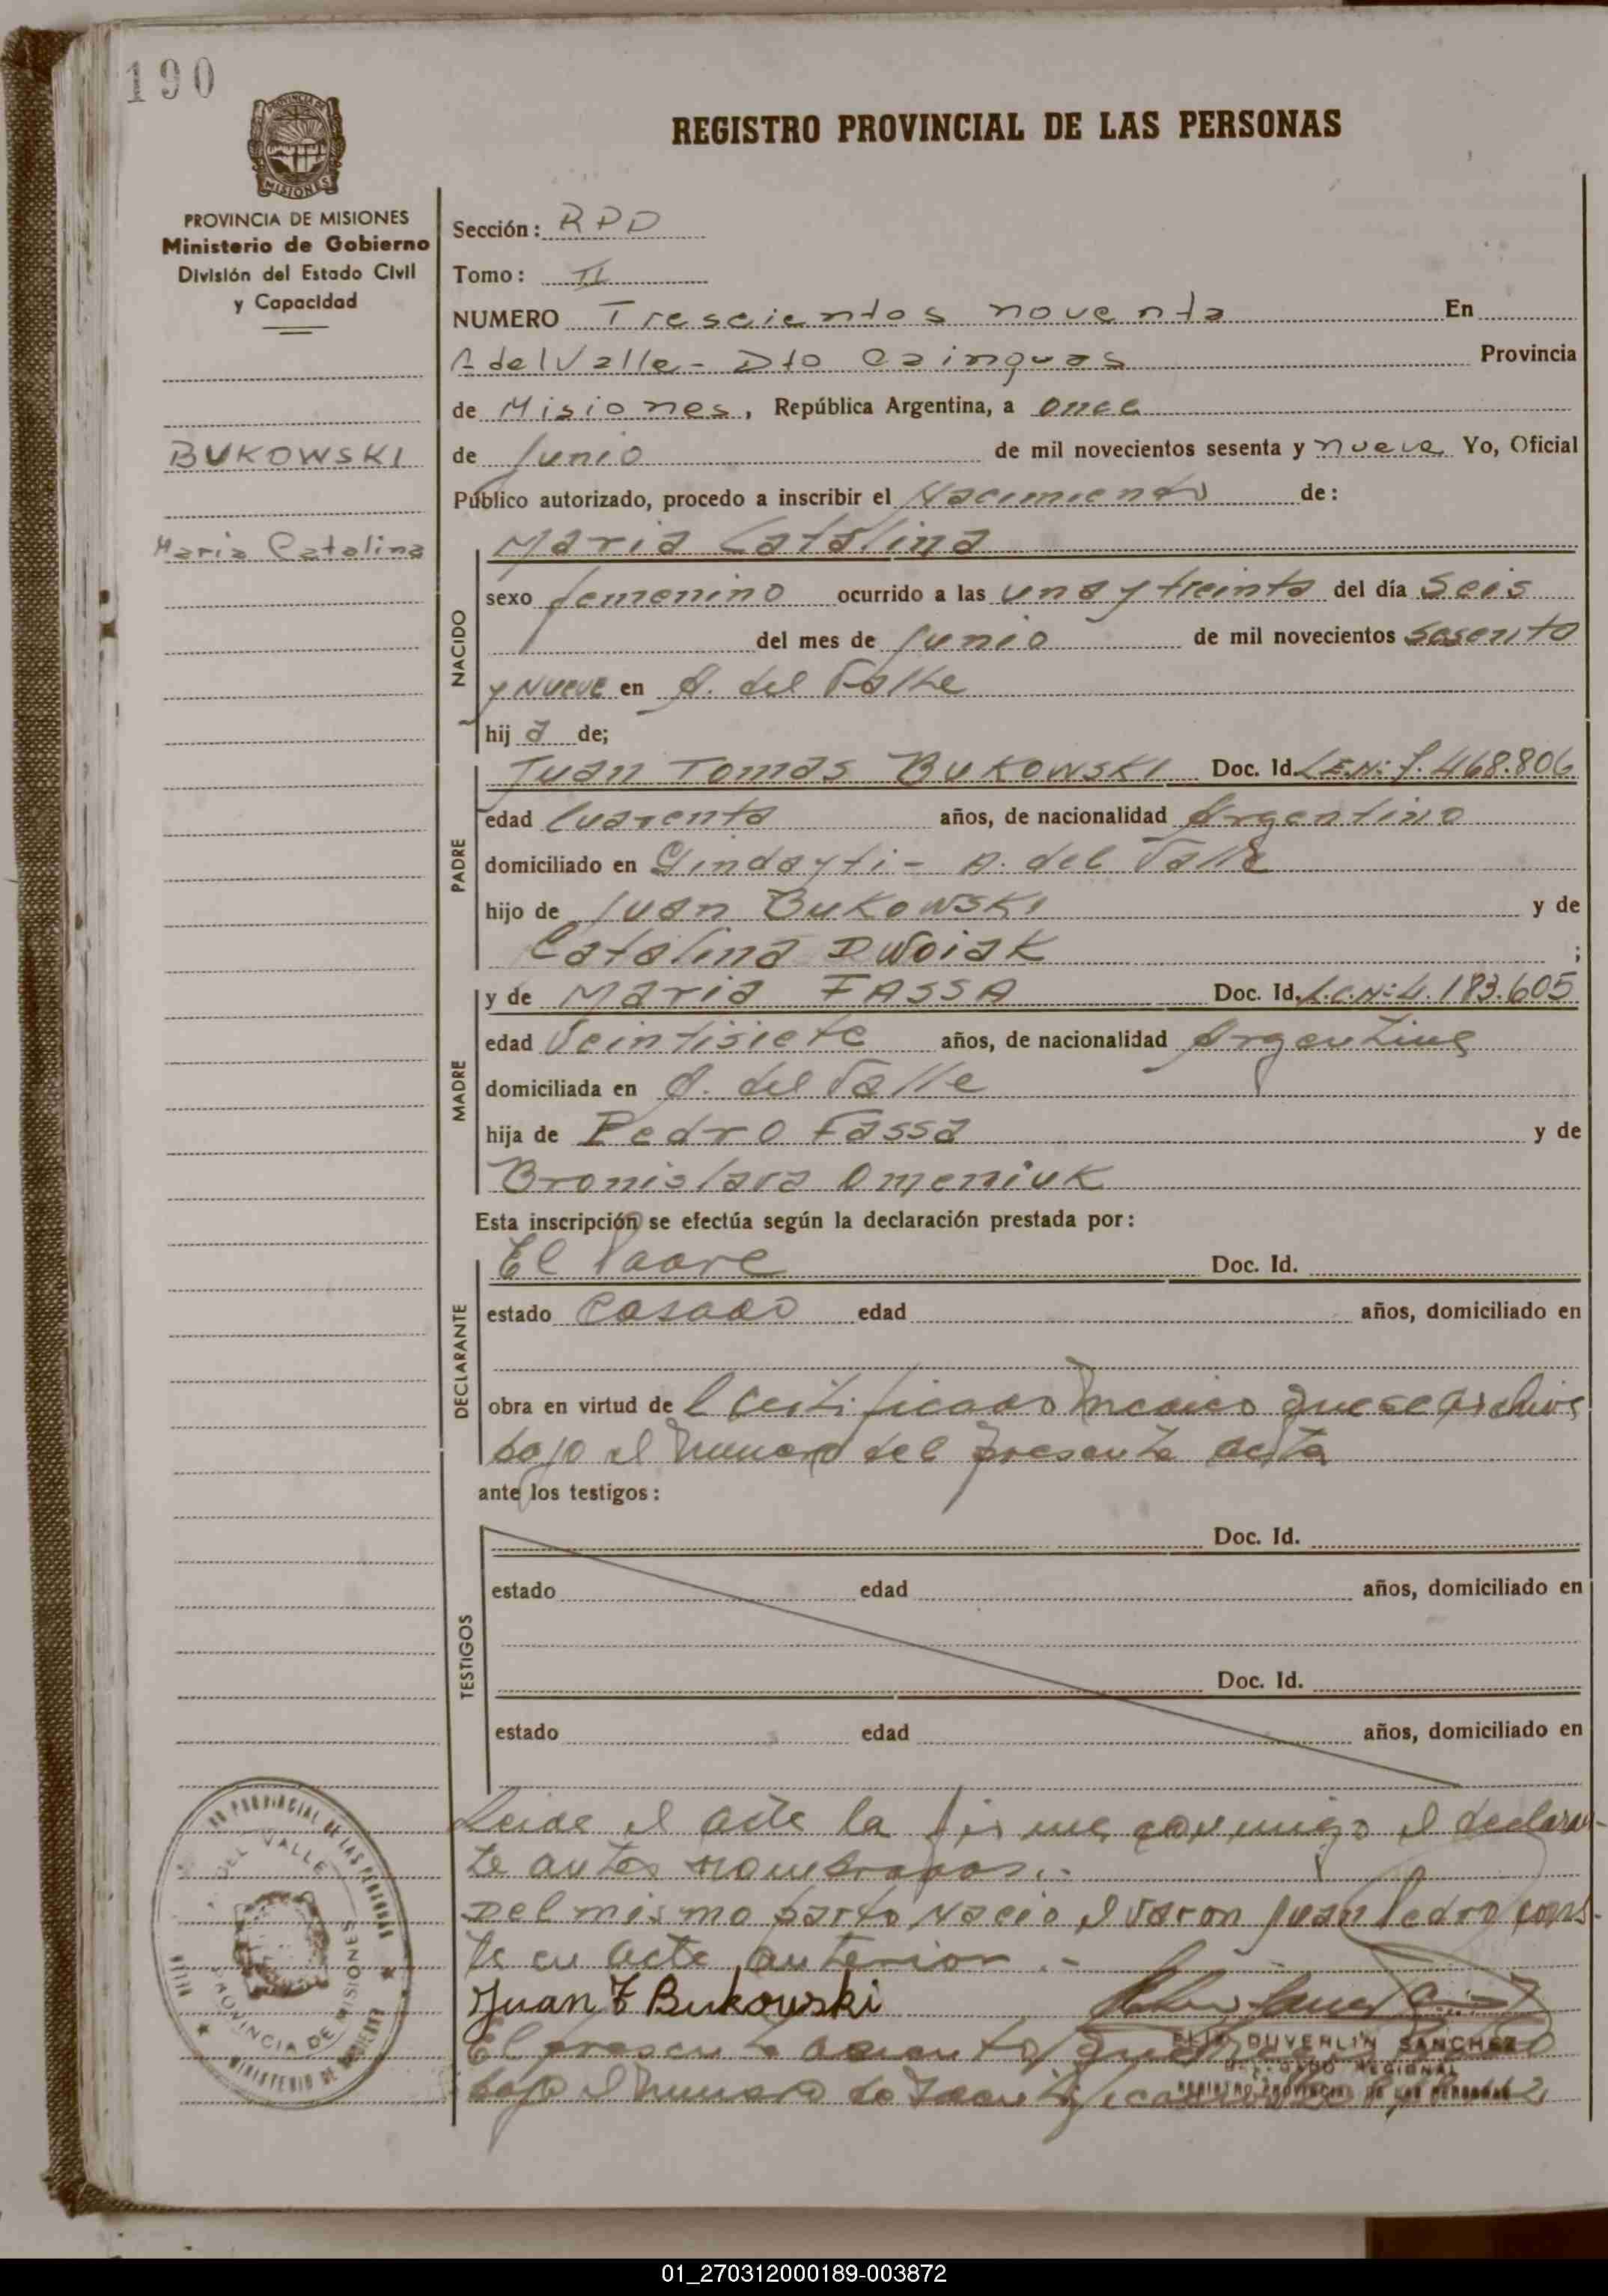 190
PROVINCIA DE MISIONES
MISIONES
PROVINCIA DE MISIONES
Ministerio de Gobierno
División del Estado Civil
y Capacidad
BUKOWSKI
Maria Catalina
REGISTRO PROVINCIAL DE LAS PERSONAS
Sección: RPD
Tomo: II
NUMERO Trescientos noventa En
A del Valle - Dto Cainguas Provincia
de Misiones, República Argentina, a once
de Junio de mil novecientos sesenta y nueve Yo, Oficial
Público autorizado, procedo a inscribir el Nacimiento de:
NACIDO
Maria Catalina
sexo femenino ocurrido a las una y treinta del día Seis
del mes de Junio de mil novecientos sesenta
y Nueve en A. del Valle
hij a de;
PADRE
Juan Tomas BUKOWSKI Doc. Id. L.E.Nº: 7.468.806
edad Cuarenta años, de nacionalidad Argentino
domiciliado en A. del Valle
hijo de Juan BUKOWSKI y de
Catalina DWOIAK ;
MADRE
y de Maria FASSA Doc. Id. L.C.Nº: 4.183.605
edad Veintisiete años, de nacionalidad Argentina
domiciliada en A. del Valle
hija de Pedro Fassa y de
Bronislava Omeniuk
Esta inscripción se efectúa según la declaración prestada por:
DECLARANTE
El Padre Doc. Id.
estado Casado edad años, domiciliado en
obra en virtud de l certificado medico que se archiva
bajo el numero del presente acta
ante los testigos:
TESTIGOS
Doc. Id.
estado edad años, domiciliado en
Doc. Id.
estado edad años, domiciliado en
Leida el acta la firma conmigo el declaran-
te antes nombrado.-
Del mismo parto Nacio el varon Juan Pedro cons-
ta en acta anterior.-
Juan T Bukowski
DUVERLIN SANCHEZ
DELEGADO REGIONAL
REGISTRO PROVINCIAL DE LAS PERSONAS
El presente asiento
bajo el numero de
PROVINCIAL DE LAS PERSONAS
DEL VALLE
PROVINCIA DE MISIONES
MINISTERIO DE GOBIERNO
01_270312000189-003872